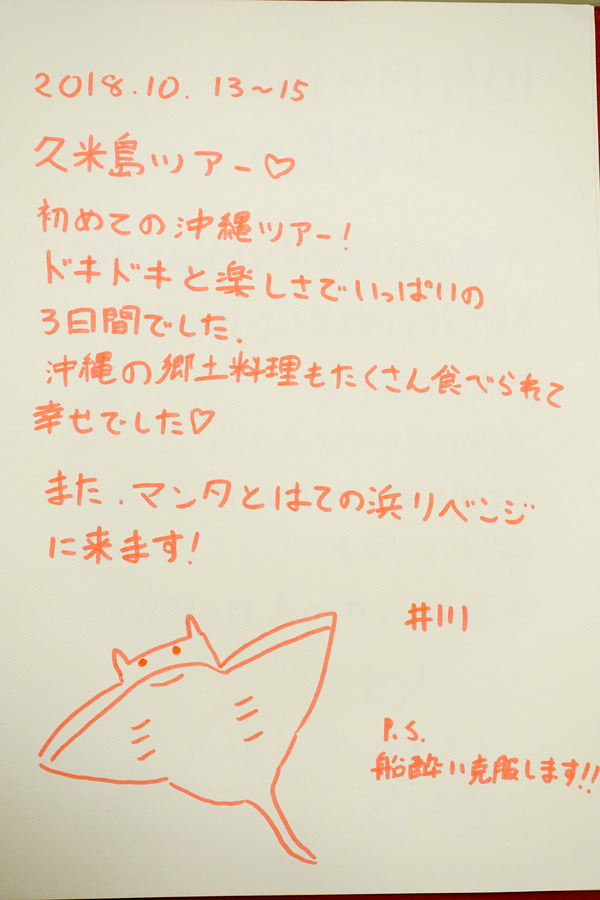 2018.10.13～15
久米島ツアー♡
初めての沖縄ツアー！
ドキドキと楽しさでいっぱいの
3日間でした.
沖縄の郷土料理もたくさん食べられて
幸せでした♡
また、マンタとはての浜リベンジ
に来ます！
井川
P.S.
船酔い克服します!!